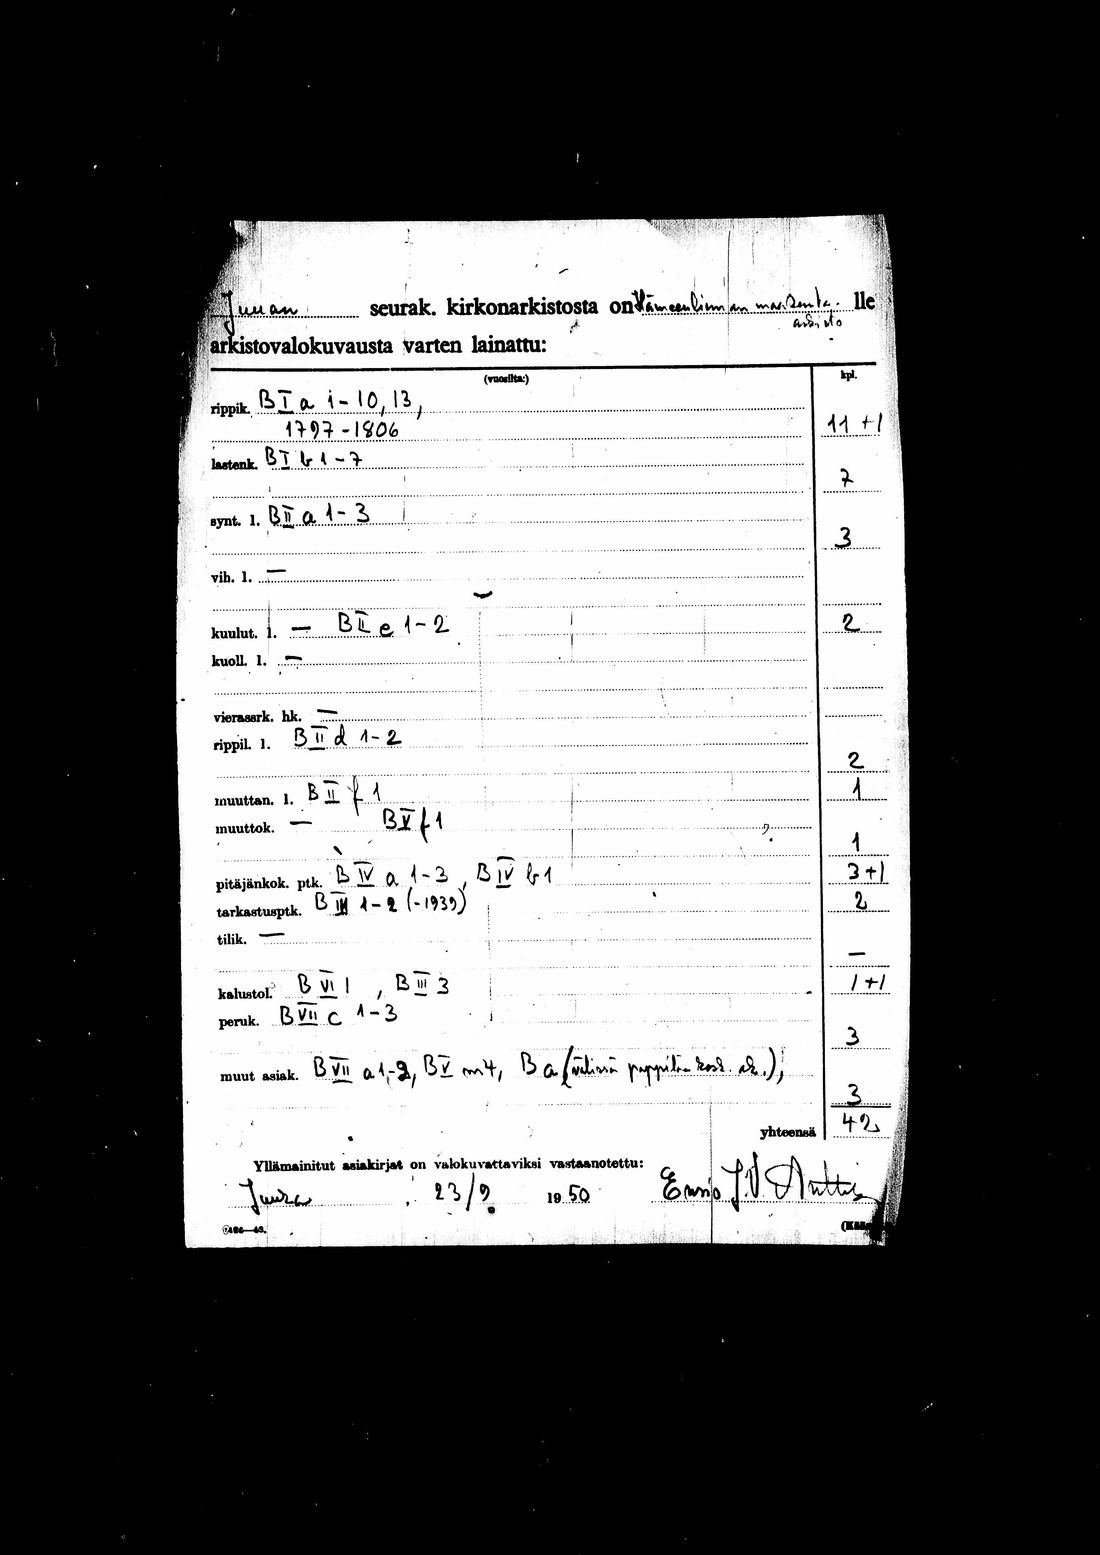 Juuan seurak. kirkonarkistosta on Hämeenlinnan maakunta- lle
arkisto
arkistovalokuvausta varten lainattu:
(vuosilta:) kpl.
rippik. B I a 1-10, 13,
1797-1806 11 +1
lastenk. B I b 1-7
7
synt. l. B II a 1-3
3
vih. l. —
kuulut. l. — B II e 1-2 2
kuoll. l. —
vierassrk. hk. —
rippil. l. B II d 1-2
2
muuttan. l. B II f 1 1
muuttok. — B V f 1 ?
1
pitäjänkok. ptk. B IV a 1-3, B IV b 1 3+1
tarkastusptk. B III 1-2 (-1939) 2
tilik. —
—
kalustol. B VI 1, B III 3 1+1
peruk. B VII c 1-3
3
muut asiak. B VII a 1-2, B V m 4, B a (välissä pappilan kosk. ak.),
3
yhteensä 42
Yllämainitut asiakirjat on valokuvattaviksi vastaanotettu:
Juuka 23/9 1950 Ensio J V Anttila